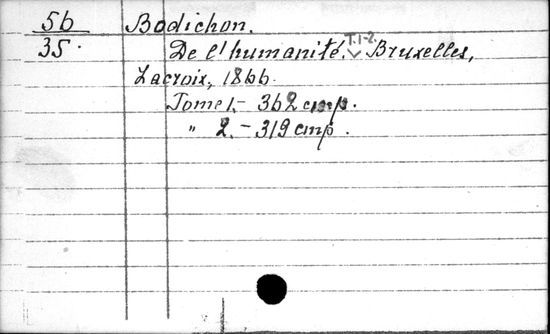 56 Bodichon.
35. De l'humanité. T.1-2. Bruxelles,
Lacroix, 1866.
Tome 1.- 362 стр.
" 2.- 319 стр.